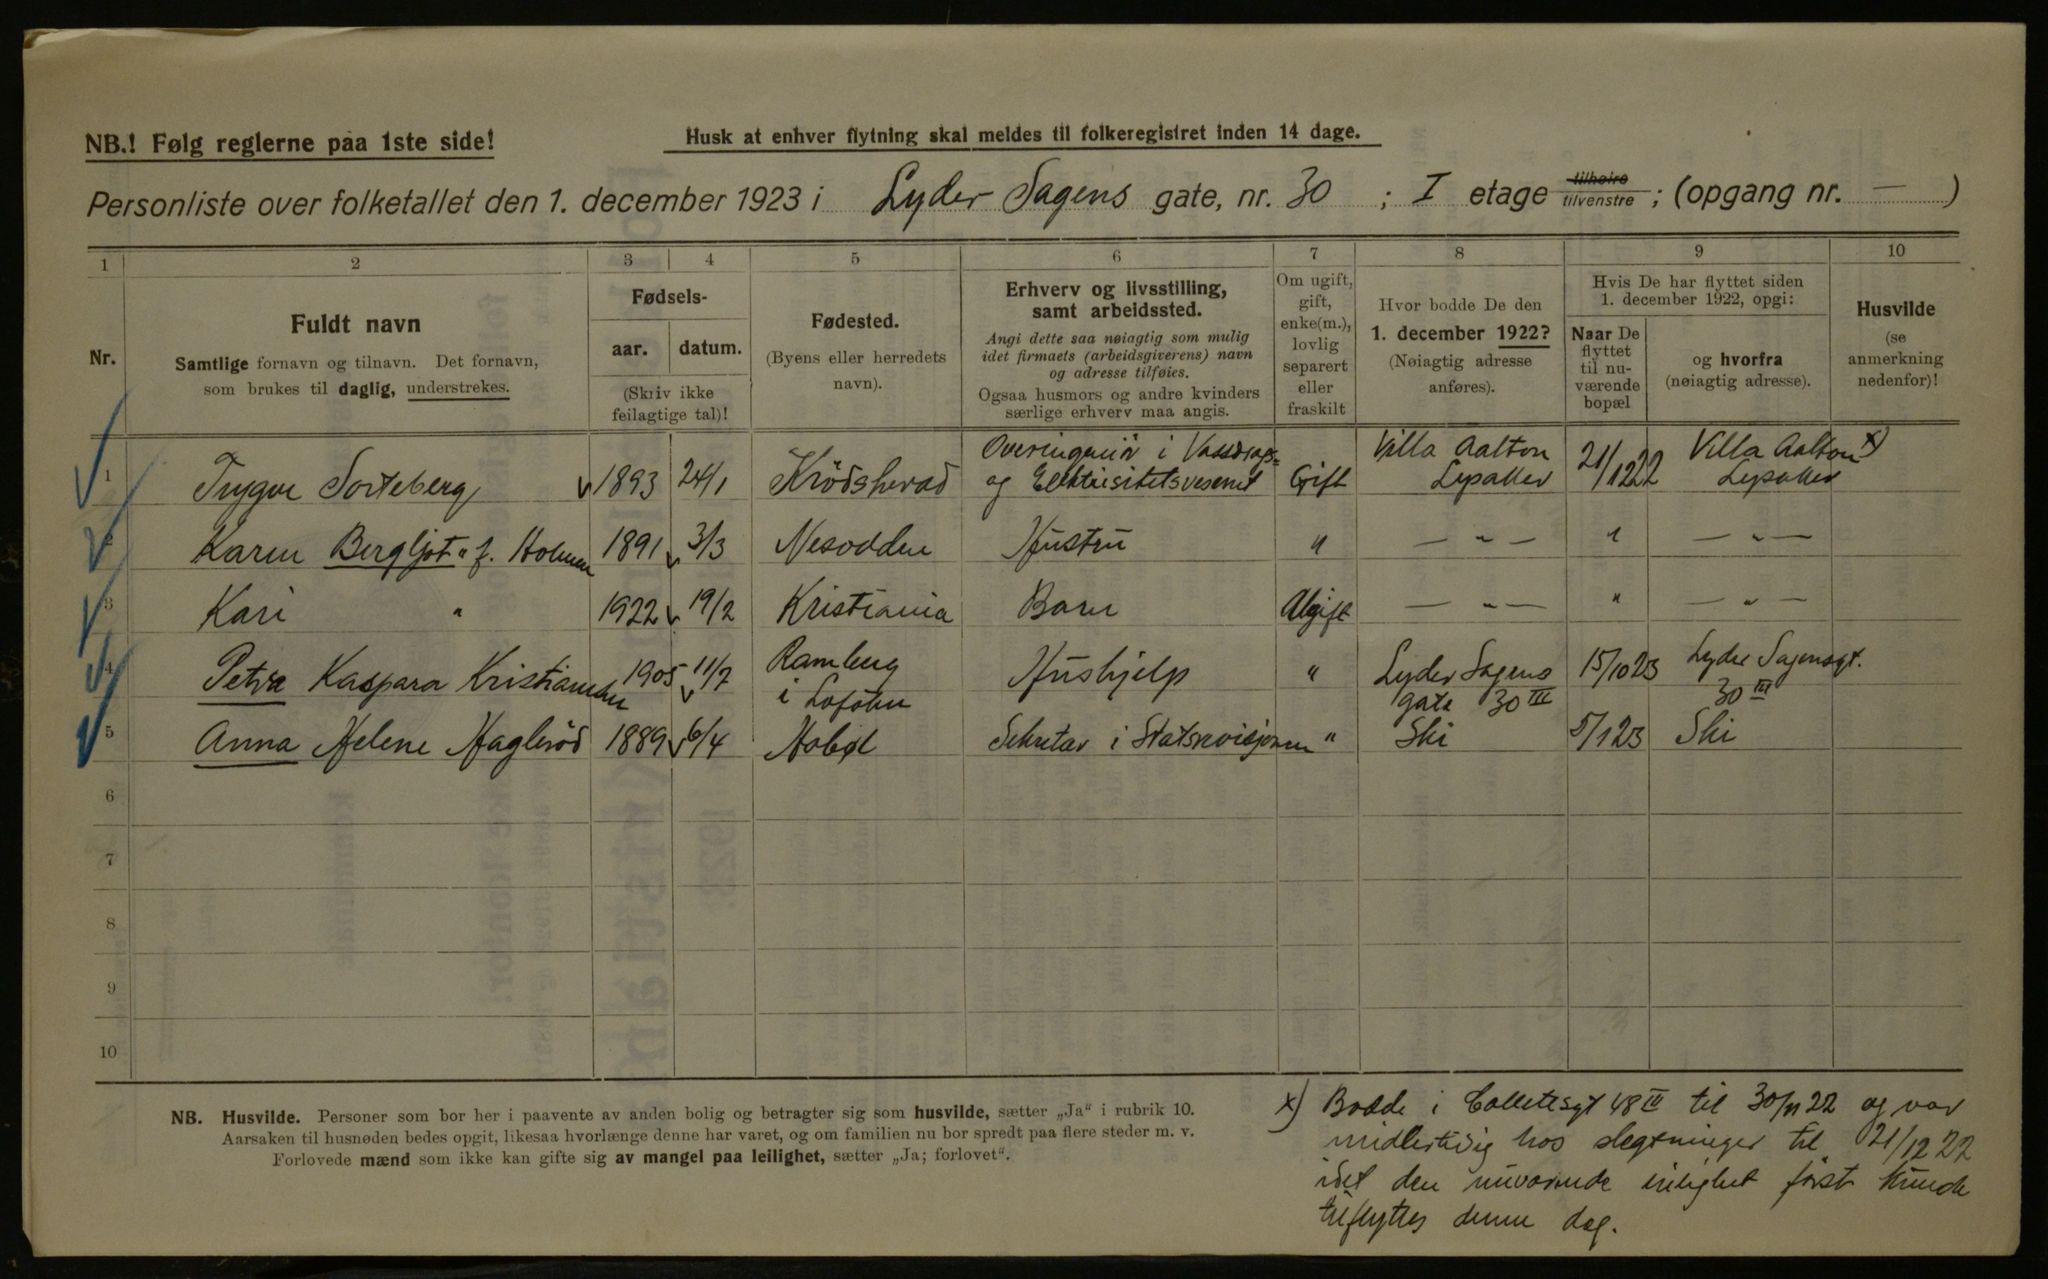 NB.! Følg reglerne paa 1ste side!
Husk at enhver flytning skal meldes til folkeregistret inden 14 dage.
Personliste over folketallet den 1. december 1923 i Lyder Sagens gate, nr. 30 ; I etage tilhøire tilvenstre ; (opgang nr. — )
1 2 3 4 5 6 7 8 9 10
Nr.
Fuldt navn
Samtlige fornavn og tilnavn. Det fornavn,
som brukes til daglig, understrekes.
Fødsels-
aar. datum.
(Skriv ikke
feilagtige tal)!
Fødested.
(Byens eller herredets
navn).
Erhverv og livsstilling,
samt arbeidssted.
Angi dette saa nøiagtig som mulig
idet firmaets (arbeidsgiverens) navn
og adresse tilføies.
Ogsaa husmors og andre kvinders
særlige erhverv maa angis.
Om ugift,
gift,
enke(m.),
lovlig
separert
eller
fraskilt
Hvor bodde De den
1. december 1922?
(Nøiagtig adresse
anføres).
Hvis De har flyttet siden
1. december 1922, opgi:
Naar De
flyttet
til nu-
værende
bopæl
og hvorfra
(nøiagtig adresse).
Husvilde
(se
anmerkning
nedenfor)!
1 Trygve Sorteberg 1893 24/1 Krödsherad Overingeniör i Vassdrags- og Elektrisitetsvesenet Gift Villa Aalton Lysaker 21/12 22 Villa Aalton x) Lysaker
2 Karen Bergljot " f. Holmen 1891 3/3 Nesodden Hustru " — " — " — " —
3 Kari " 1922 19/2 Kristiania Barn Ugift — " — " — " —
4 Petra Kaspara Kristiansen 1905 11/7 Ramberg i Lofoten Hushjelp " Lyder Sagens gate 30 III 15/10 23 Lyder Sagensgt. 30 III
5 Anna Helene Hagleröd 1889 6/4 Hobøl Sekretær i Statsrevisjonen " Ski 5/1 23 Ski
6
7
8
9
10
NB. Husvilde. Personer som bor her i paavente av anden bolig og betragter sig som husvilde, sætter „Ja“ i rubrik 10.
Aarsaken til husnøden bedes opgit, likesaa hvorlænge denne har varet, og om familien nu bor spredt paa flere steder m. v.
Forlovede mænd som ikke kan gifte sig av mangel paa leilighet, sætter „Ja; forlovet“.
x) Bodde i Colletts gt 48 III til 30/11 22 og var
midlertidig hos slegtninger til 21/12 22
idet den nuværende leilighet först kunde
tilflyttes denne dag.